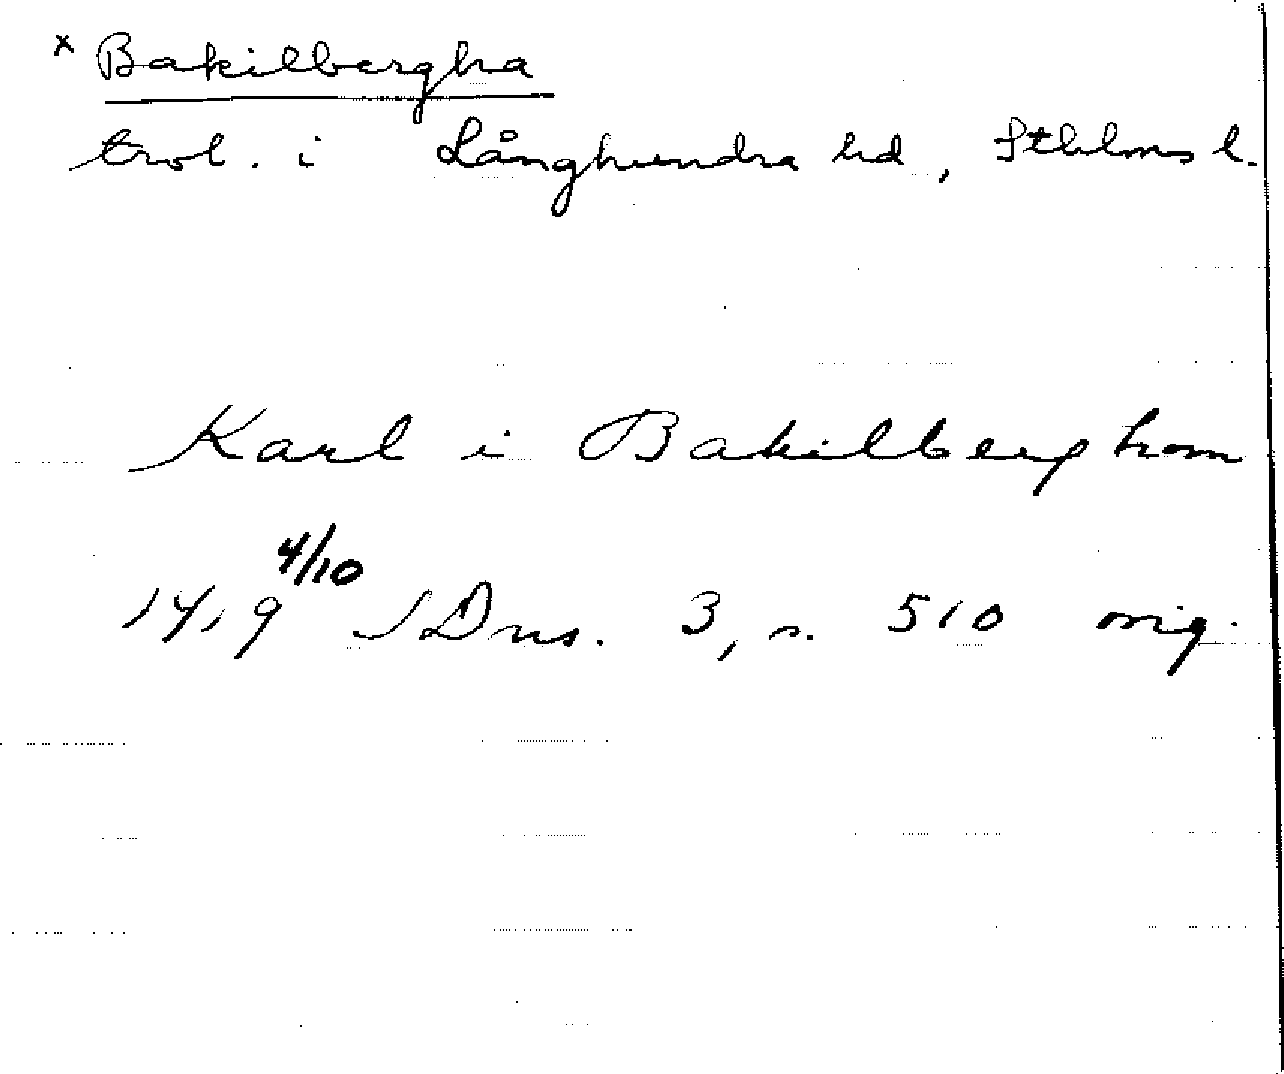 x Bakilbergha
trol. i Långhundra hd, Sthlms l.
Karl i Bakilberghom
1419 4/10 SDns. 3, s. 510 orig.